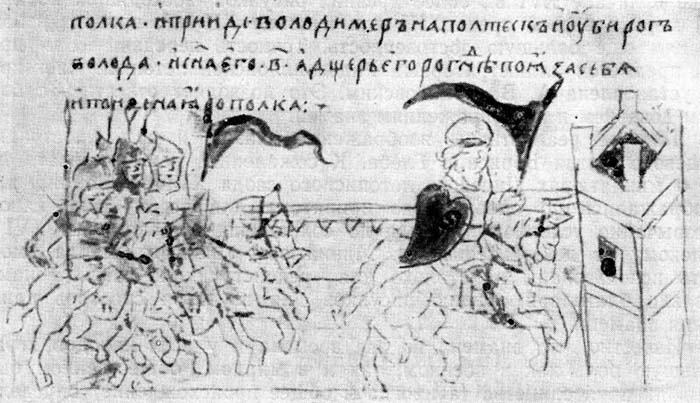 полка · и҆ прииде володимеръ на полтескъ и оуби рог
волода · и сн҃а его · в҃ · а дщерь его рогнѣдь поѩ за себѧ
и приде на ꙗрополка ; ·